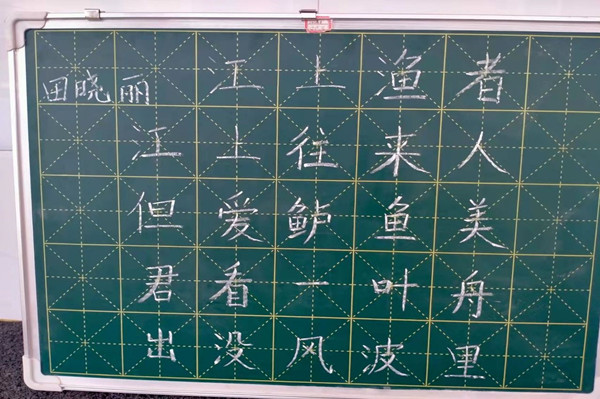 田晓丽 江上渔者
江上往来人
但爱鲈鱼美
君看一叶舟
出没风波里